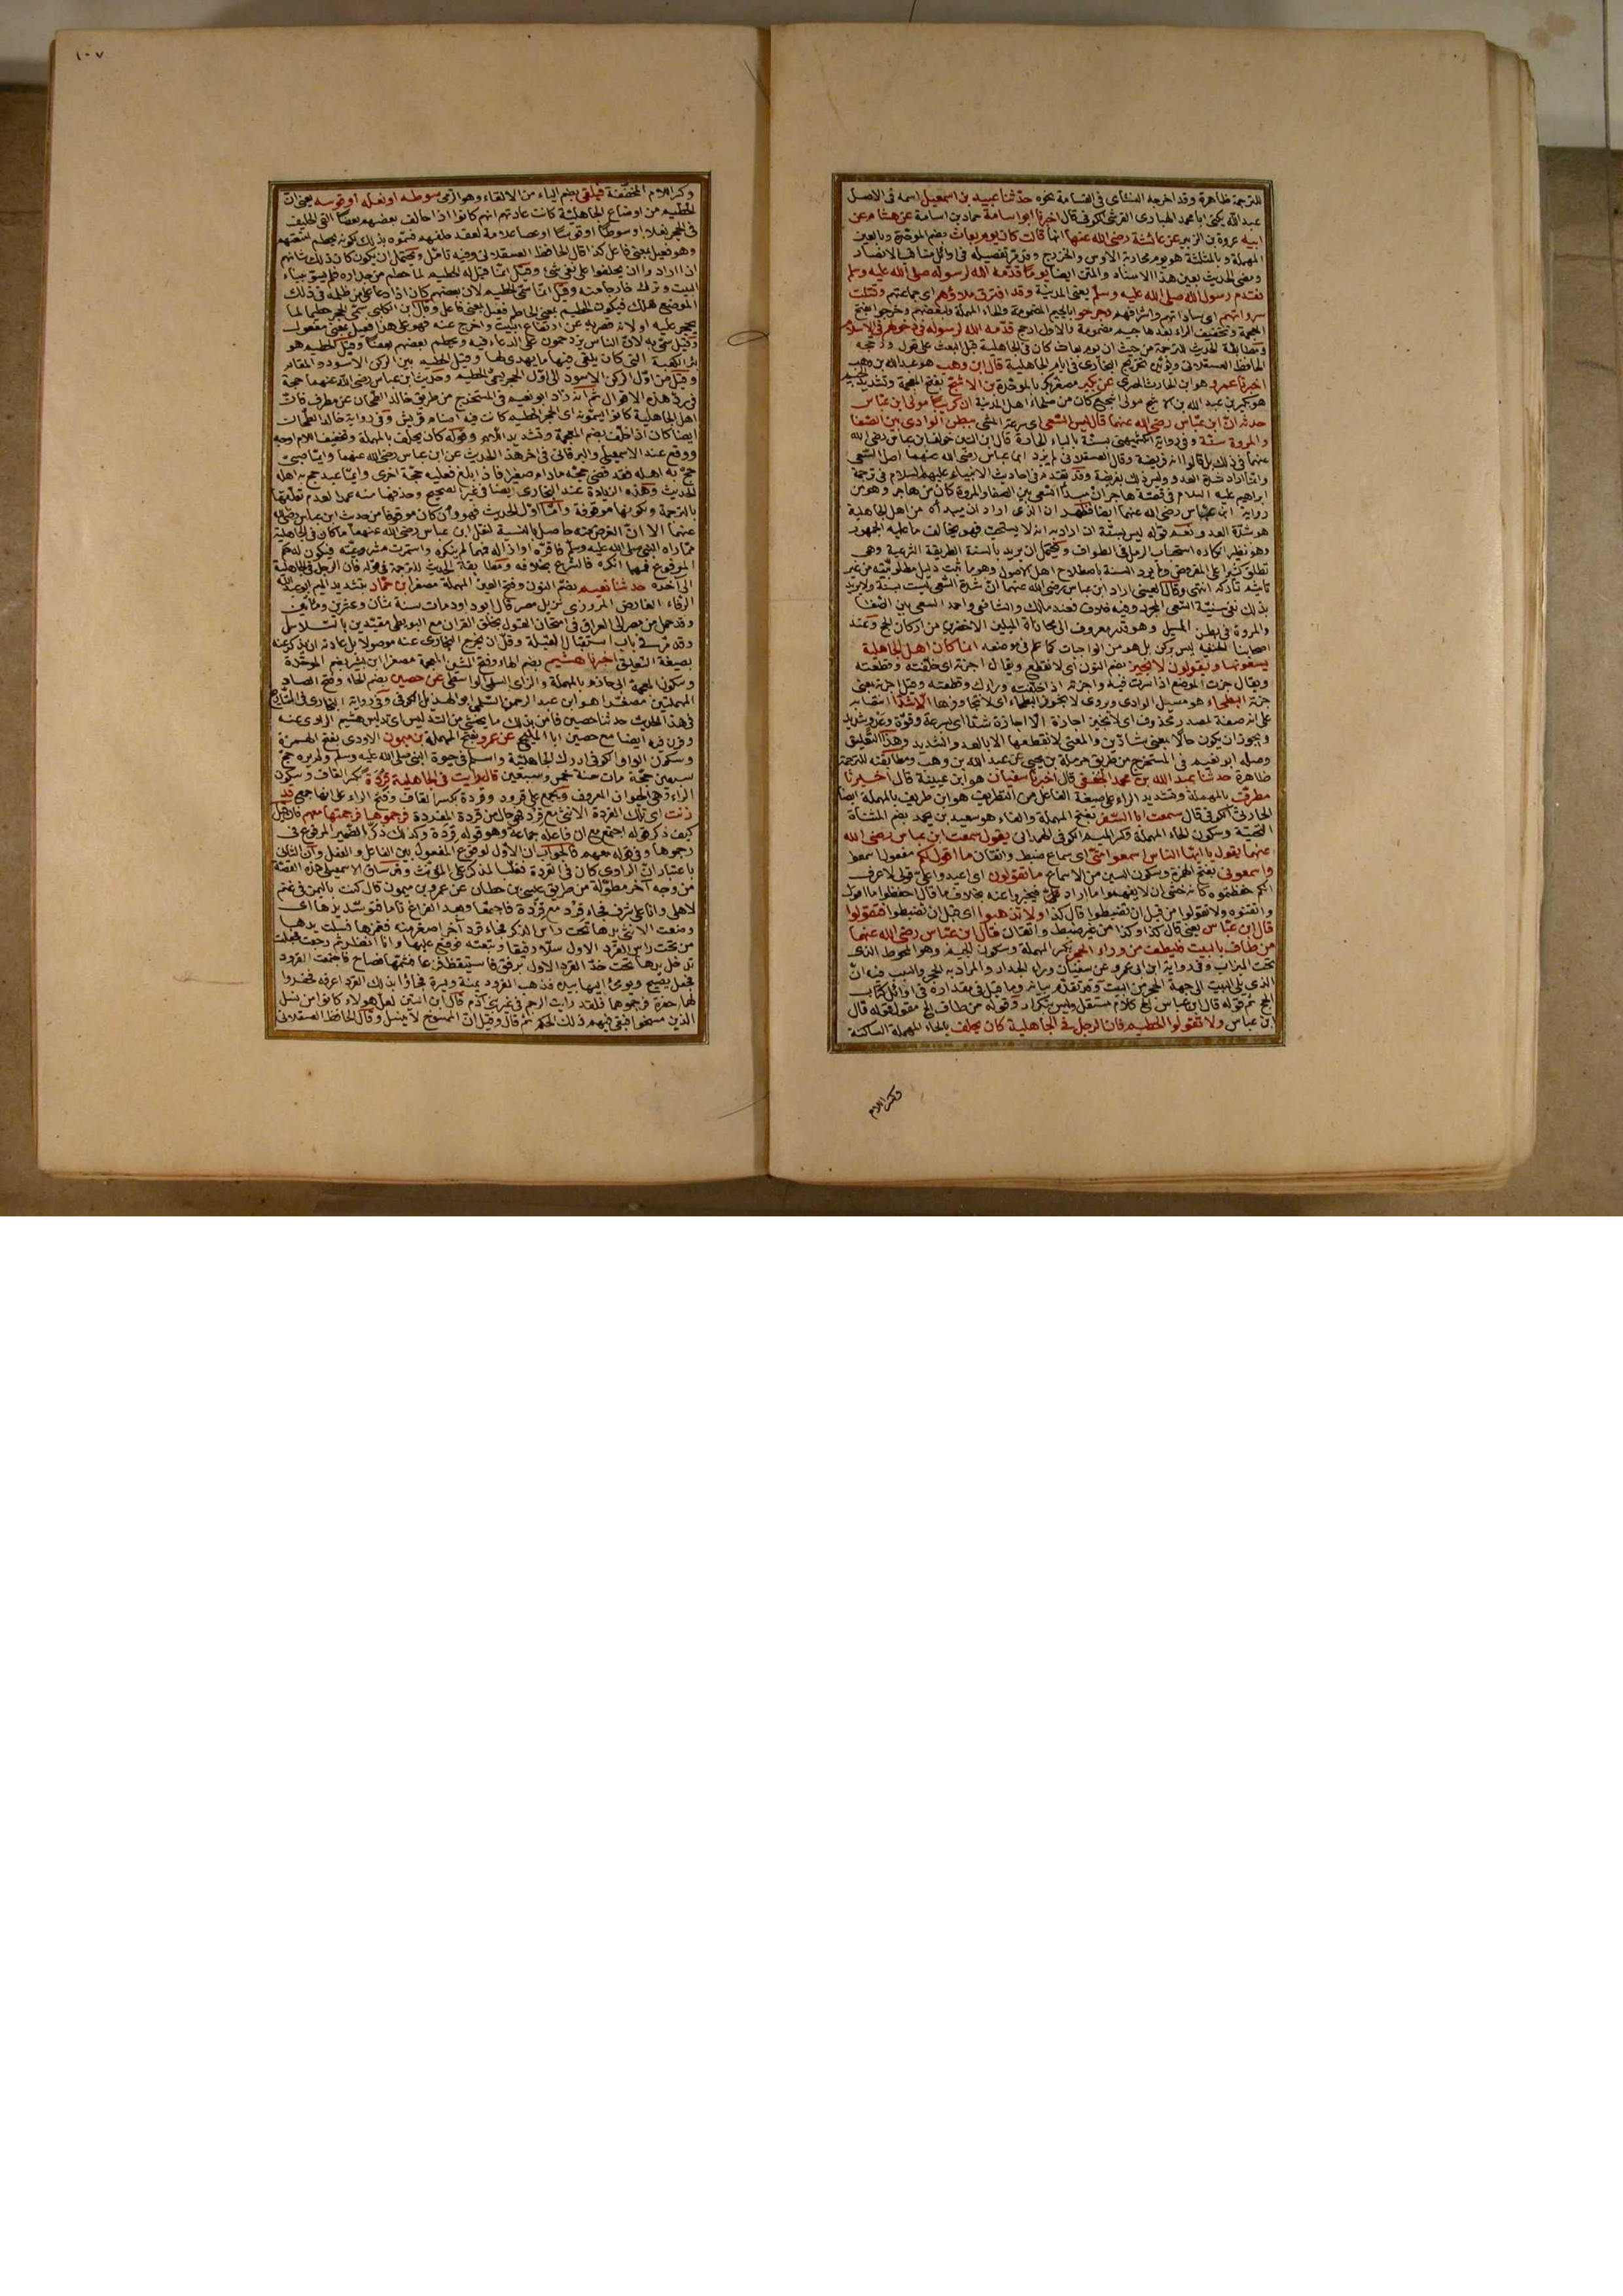 للترجمة ظاهرة وقد اخرجه النسائى فى القسامة نحوه حدثنا عبيد بن اسمعيل اسمه فى الاصل
عبد الله يكنى ابا محمد الهبارى القرشى الكوفى قال اخبرنا ابو اسامة حماد بن اسامة عن هشام عن
ابيه عروة بن الزبير عن عائشة رضى الله عنها انها قالت كان يوم بعاث بضم الموحدة وبالعين
المهملة وبالمثلثة هو يوم محاربة الاوس والخزرج وقد مر تفصيله فى اوائل مناقب الانصار
ومعنى الحديث بعين هذا الاسناد والمتن ايضا يوما قدمه الله لرسوله صلى الله عليه وسلم
فقدم رسول الله صلى الله عليه وسلم يعنى المدينة وقد افترق ملاؤهم اى جماعتهم وقتلت
سرواتهم اى ساداتهم واشرافهم وجرحوا بالجيم المضمومة والحاء المهملة ولبعضهم وخرجوا بفتح
المعجمة وتخفيف الراء بعدها جيم مضمومة والاول ارجح قدمه الله لرسوله فى دخولهم فى الاسلام
ومطابقة الحديث للترجمة من حيث ان يوم بعاث كان فى الجاهلية قبل البعث على قول
الحافظ العسقلانى تخريج البخارى فى ايام الجاهلية قال ابن وهب هو عبد الله بن وهب
اخبرنا عمرو هو ابن الحارث المصرى عن بكير مصغر بكر بالموحدة بن الاشج بفتح المعجمة وتشديد الجيم
هو بكير بن عبد الله بن الاشج مولى اشجع كان من صلحاء اهل المدينة ان كريبا مولى ابن عباس
حدثه ان ابن عباس رضى الله عنهما قال ليس السعى اى سرعة المشى ببطن الوادى بين الصفا
والمروة سنة وفى رواية الكشميهنى بسنة بالباء الجارة قال ابن التين خولف ابن عباس رضى الله
عنهما فى ذلك بل قالوا انه فريضة وقال العسقلانى لم يرد ابن عباس رضى الله عنهما اصل السعى
وانما اراد شدة العدو وليس ذلك بفريضة وقد تقدم فى احاديث الانبياء عليهم السلام فى ترجمة
ابراهيم عليه السلام فى قصة هاجر ان مبدأ السعى بين الصفا والمروة كان من هاجر وهو من
رواية ابن عباس رضى الله عنهما ايضا فظهر ان الذى اراد ان مبدأه من اهل الجاهلية
هو شدة العدو نعم قوله ليس بسنة ان اراد به انه لا يستحب فهو يخالف ما عليه الجمهور
وهو نظير انكاره استحباب الرمل فى الطواف ويحتمل ان يريد بالسنة الطريقة الشرعية وهى
تطلق كثيرا على المفروض ولم يرد السنة باصطلاح اهل الاصول وهو ما ثبت دليل مطلوبيته من غير
تأثيم تاركه انتهى وقال العينى اراد ابن عباس رضى الله عنهما ان شدة السعى ليست بسنة ولا يريد
بذلك نفى سنية السعى المجرد وفيه خلاف فعند مالك والشافعى واحمد السعى بين الصفا
والمروة فى بطن المسيل وهو قدر معروف الى محاذاة الميلين الاخضرين من اركان الحج وعند
اصحابنا الحنفية ليس بركن بل هو من الواجبات كما علم فى موضعه انما كان اهل الجاهلية
يسعونها ويقولون لا نجيز بضم النون اى لا نقطع ويقال اجزته اى خلفته وقطعته
ويقال جزت الموضع اذا سرت فيه واجزته اذا خلفته وراءك وقطعته وقيل اجزته بمعنى
جزته البطحاء هو مسيل الوادى ويروى لا نجوز البطحاء اى لا نتجاوزها الا شدا انتصابه
على انه صفة لمصدر محذوف اى لا نجيز اجازة الا اجازة شدا اى بسرعة وقوة وعدو شديد
ويجوز ان يكون حالا بمعنى شادين والمعنى لا نقطعها الا بالعدو الشديد وهذا التعليق
وصله ابو نعيم فى المستخرج من طريق حرملة بن يحيى عن عبد الله بن وهب ومطابقته للترجمة
ظاهرة حدثنا عبد الله بن محمد الجعفى قال اخبرنا سفيان هو ابن عيينة قال اخبرنا
مطرف بالمهملة وتشديد الراء على صيغة الفاعل من التطريف هو ابن طريف بالمهملة ايضا
الحارثى الكوفى قال سمعت ابا السفر بفتح المهملة والفاء هو سعيد بن يحمد بضم المثناة
التحتية وسكون الحاء المهملة وكسر الميم الكوفى الهمدانى يقول سمعت ابن عباس رضى الله
عنهما يقول يا ايها الناس اسمعوا منى اى سماع ضبط واتقان ما اقول لكم مفعول اسمعوا
واسمعونى بفتح الهمزة وسكون السين من الاسماع ما تقولون اى اعيدوا على قولى لاعرف
انكم حفظتموه كانه خشى ان لا يفهموا ما اراد فيخبروا عنه بخلاف ما قال احفظوا ما اقول
واتقنوه ولا تقولوا من قبل ان تضبطوا قال كذا ولا تذهبوا اى قبل ان تضبطوا فتقولوا
قال ابن عباس يعنى قال كذا وكذا من غير ضبط واتقان قال ابن عباس رضى الله عنهما
من طاف بالبيت فليطف من وراء الحجر بكسر المهملة وسكون الجيم وهو المحوط الذى
تحت الميزاب وفى رواية ابن ابى عمرو عن سفيان وراء الجدار والمراد به الحجر والسبب فيه ان
الذى يلى البيت الى جهة الحجر من البيت وقد تقدم بيانه وما قيل فى مقداره فى اوائل كتاب
الحج ثم قوله قال ابن عباس الخ كلام مستقل وليس بتكرار وقوله من طاف الخ مقول قوله قال
ابن عباس ولا تقولوا الحطيم فان الرجل فى الجاهلية كان يحلف بالحاء المهملة الساكنة
وكسر اللام
١٠٧
وكسر اللام المخففة فيلقى بضم الياء من الالقاء وهو الرمى سوطه او نعله او قوسه يعنى ان
الحطيم من اوضاع الجاهلية كانت عادتهم انهم كانوا اذا حالف بعضهم بعضا القى الحليف
فى الحجر نعلا او سوطا او قوسا او عصا علامة لعقد حلفهم فسموه بذلك لكونه يحطم امتعتهم
وهو فعيل بمعنى فاعل كذا قال الحافظ العسقلانى وفيه تأمل ويحتمل ان يكون كان ذلك شأنهم
ان اراد وا ان يحلفوا على نفى شىء وقيل انما قيل له الحطيم لما حطم من جداره فلم يسو ببناء
البيت وترك خارجا منه وقيل انما سمى الحطيم لان بعضهم كان اذا دعا على من ظلمه فى ذلك
الموضع هلك فيكون الحطيم بمعنى الحاطم فعيل بمعنى فاعل وقال ابن الكلبى سمى الحجر حطيما لما
يحجر عليه او لانه قصر به عن ارتفاع البيت واخرج عنه فهو على هذا فعيل بمعنى مفعول
وقيل سمى به لان الناس يزدحمون على الدعاء فيه ويحطم بعضهم بعضا وقيل الحطيم هو
بئر الكعبة التى كان يلقى فيها ما يهدى لها وقيل الحطيم بين الركن الاسود والمقام
وقيل من اول الركن الاسود الى اول الحجر يسمى الحطيم وحديث ابن عباس رضى الله عنهما حجة
فى رد هذه الاقوال ثم انه زاد ابو نعيم فى المستخرج من طريق خالد الطحان عن مطرف فان
اهل الجاهلية كانوا يسمونه اى الحجر الحطيم كانت فيه اصنام قريش وفى رواية خالد الطحان
ايضا كان اذا حلف بضم المعجمة وتشديد اللام وقوله كان يحلف بالمهملة وتخفيف اللام اوجه
ووقع عند الاسمعيلى والبرقانى فى اخر هذا الحديث عن ابن عباس رضى الله عنهما وايما صبى
حج به اهله فقد قضى حجه مادام صغيرا فاذا بلغ فعليه حجة اخرى وايما عبد حج به اهله
الحديث وهذه الزيادة عند البخارى ايضا فى غير الصحيح وحذفها منه عمدا لعدم تعلقها
بالترجمة ولكونها موقوفة واما اول الحديث فهو وان كان موقوفا من حديث ابن عباس رضى الله
عنهما الا ان الغرض منه حاصل بالنسبة لنقل ابن عباس رضى الله عنهما ما كان فى الجاهلية
مما راه النبى صلى الله عليه وسلم فاقره او ازاله فيما لم ينكره واستمرت مشروعيته فيكون له حكم
المرفوع فمهما انكره فالشرع بخلافه ومطابقة الحديث للترجمة فى قوله فان الرجل فى الجاهلية
الى آخره حدثنا نعيم بضم النون وفتح العين المهملة مصغر ابن حماد بتشديد الميم ابو عبد الله
الرفاء الفارض المروزى نزيل مصر قال ابو داود مات سنة ثمان وعشرين ومائتين
وقد حمل من مصر الى العراق فى امتحان القول بخلق القران مع البويطى مقيدين بالسلاسل
وقد مر فى باب استقبال القبلة وقل ان يخرج البخارى عنه موصولا بل عادته ان يذكر عنه
بصيغة التعليق اخبرنا هشيم بضم الهاء وفتح الشين المعجمة مصغرا ابن بشير بفتح الموحدة
وسكون المعجمة ابن حازم بالمهملة والزاى السلمى الواسطى عن حصين بضم الحاء وفتح الصاد
المهملتين مصغرا هو ابن عبد الرحمن السلمى ابو الهذيل الكوفى وفى رواية البخارى فى التاريخ
فى هذا الحديث حدثنا حصين فامن بذلك ما يخشى من التدليس اى تدليس هشيم الراوى عنه
وقرن فيه ايضا مع حصين ابا المليح عن عمرو بفتح المهملة بن ميمون الاودى بفتح الهمزة
وسكون الواو الكوفى ادرك الجاهلية واسلم فى حيوة النبى صلى الله عليه وسلم ولم يره حج
سبعين حجة مات سنة خمس وسبعين قال رايت فى الجاهلية قردة بكسر القاف وسكون
الراء وهى الحيوان المعروف ويجمع على قرود وقردة بكسر القاف وفتح الراء على انها جمع قد
زنت اى تلك القردة الانثى مع قرد فى حال من قردة المفردة فرجموها فرجمتها معهم فان قيل
كيف ذكر قوله اجتمع مع ان فاعله جماعة وهو قوله قردة وكذلك ذكر الضمير المرفوع فى
رجموها وفى قوله معهم فالجواب ان الاول لوقوع المفعول بين الفاعل والفعل وان الثانى
باعتبار ان الراوى كان فى القردة فغلب المذكر على المؤنث وقد ساق الاسمعيلى هذه القصة
من وجه آخر مطولة من طريق عيسى بن حطان عن عمرو بن ميمون قال كنت باليمن فى غنم
لاهلى وانا على شرف فجاء قرد مع قردة فاجتمعا وبعد الفراغ ناما فتوسد يدها اى
وضعت الانثى يدها تحت راس الذكر فجاء قرد آخر اصغر منه فغمزها فسلت يدها
من تحت راس القرد الاول سلا رفيقا وتبعته فوقع عليها وانا انظر ثم رجعت فجعلت
تدخل يدها تحت خد القرد الاول برفق فاستيقظ فزعا فشمها فصاح فاجتمعت القرود
فجعل يصيح ويومئ اليها بيده فذهب القرود يمنة ويسرة فجاؤا بذلك القرد اعرفه فحفروا
لهما حفرة فرجموهما فلقد رايت الرجم فى غير بنى آدم قال ابن التين لعل هؤلاء كانوا من نسل
الذين مسخوا فبقى فيهم ذلك الحكم ثم قال وقيل ان الممسوخ لا ينسل وقال الحافظ العسقلانى